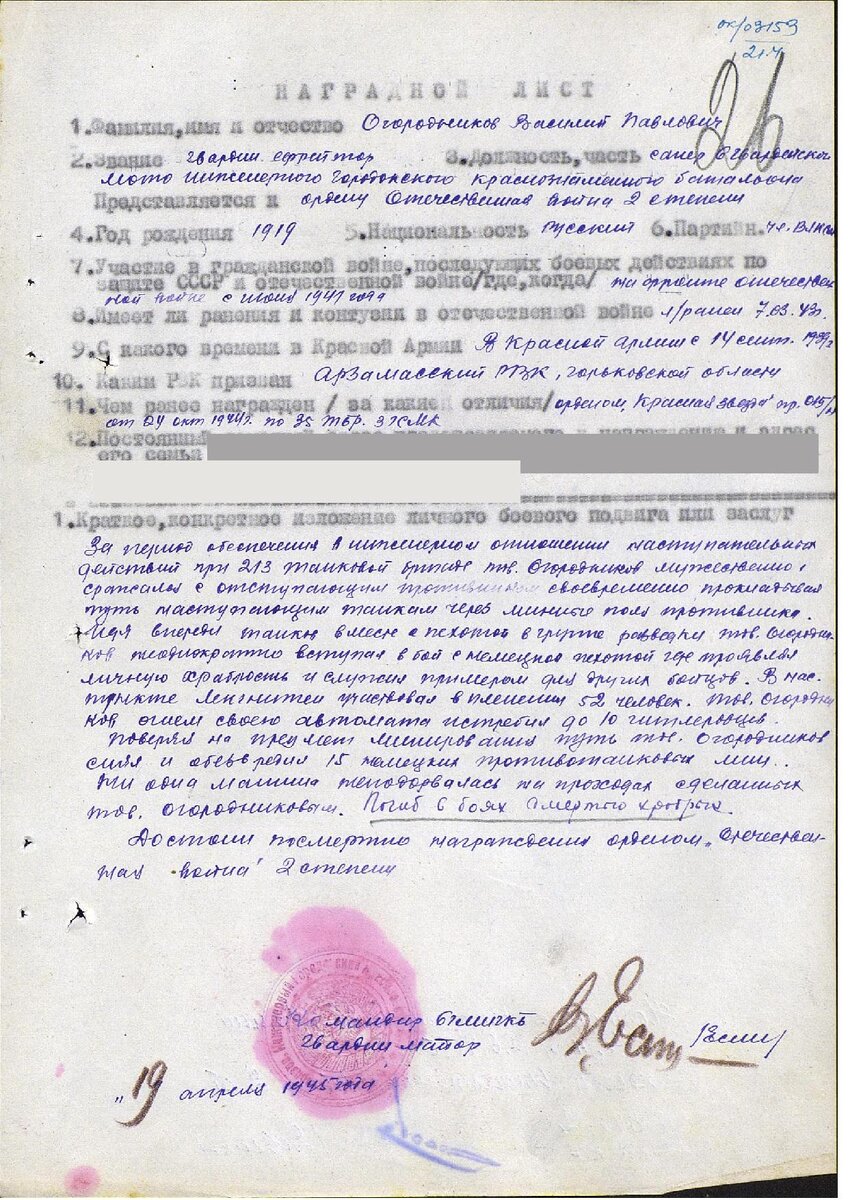 ок/03153
21.4
26
НАГРАДНОЙ ЛИСТ
1.Фамилия,имя и отчество Огородников Василий Павлович
2.Звание гвардии ефрейтор 3.Должность,часть сапер 6 гвардейского
мото инженерного Городокского краснознаменного батальона
Представляется к ордену Отечественная война 2 степени
4.Год рождения 1919 5.Национальность русский 6.Партийн.
7.Участие в гражданской войне,последующих боевых действиях по
защите СССР и отечественной войне/где,когда/ на фронте отечествен
ной войне с июня 1941 года
8.Имеет ли ранения и контузии в отечественной войне л/ранен 7.03.43г.
9.С какого времени в Красной Армии В Красной армии с 14 сент. 1939г
10. Каким РВК призван Арзамасский РВК, Горьковской области
11.Чем ранее награжден /за какие отличия/ орденом „Красная звезда" пр. 015/н
от 24 окт 1944г. по 35 тбр. 3 ГКМК
12.Постоянный
его семьи
1.Краткое,конкретное изложение личного боевого подвига или заслуг
За период обеспечения в инженерном отношении наступательных
действий при 213 танковой бригаде тов. Огородников мужественно
сражался с отступающим противником своевременно прокладывая
путь наступающим танкам через минные поля противника.
Идя впереди танков вместе с пехотой в группе разведки тов. Огородни
ков неоднократно вступал в бой с немецкой пехотой где проявлял
личную храбрость и служил примером для других бойцов. В нас.
пункте участвовал в пленении 52 человек. тов. Огородни
ков огнем своего автомата истребил до 10 гитлеровцев.
Поверяя на предмет минирования путь тов. Огородников
снял и обезвредил 15 немецких противотанковых мин..
Ни одна машина неподорвалась на проходах сделанных
тов. Огородниковым. Погиб в боях смертью храбрых
Достоин посмертно награждения орденом „Отечествен-
ная война" 2 степени
Командир 6гмикб
Гвардии майор
„19 апреля 1945 года